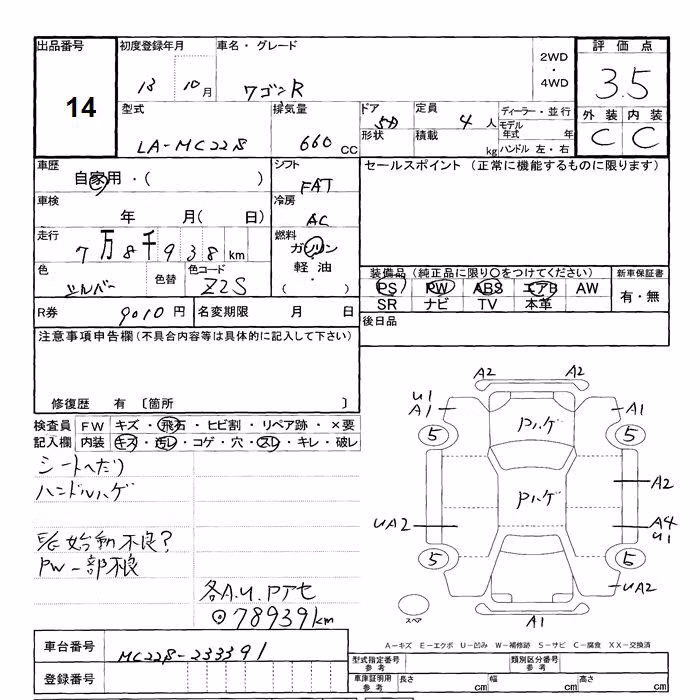 出品番号 14
初度登録年月 13 10月
車名・グレード ワゴンR
2WD・4WD
評価点 3.5
外装 C 内装 C
型式 LA-MC22S
排気量 660 CC
ドア 5D 形状
定員 4 人 積載 kg
ディーラー・並行
モデル年式 年
ハンドル 左・右
車歴 自家用・( )
シフト FAT
セールスポイント (正常に機能するものに限ります)
車検 年 月( 日)
冷房 AC
走行 7万8千938km
燃料 ガソリン・軽油・( )
色 シルバー 色替 色コード Z2S
装備品 (純正品に限り○をつけてください)
PS PW ABS エアB AW
SR ナビ TV 本革
新車保証書 有・無
R券 9010 円 名変期限 月 日
後日品
注意事項申告欄(不具合内容等は具体的に記入して下さい)
修復歴 有 〔箇所 〕
検査員記入欄
FW キズ・飛石・ヒビ割・リペア跡・×要
内装 キズ・汚レ・コゲ・穴・スレ・キレ・破レ
シートヘたり
ハンドルハゲ
E/G 始動不良?
PW一部不良
各A.U.Pアセ
78939km
A2 A2
U1
A1 Pハゲ A1
5 5
Pハゲ A2
UA2 A4
U1
5 5
UA2
スペア A1
A-キズ E-エクボ U-凹み W-補修跡 S-サビ C-腐食 XX-交換済
車台番号 MC22S-233391
登録番号
型式指定番号 参考 類別区分番号 参考
車庫証明用 参考 長さ cm 幅 cm 高さ cm